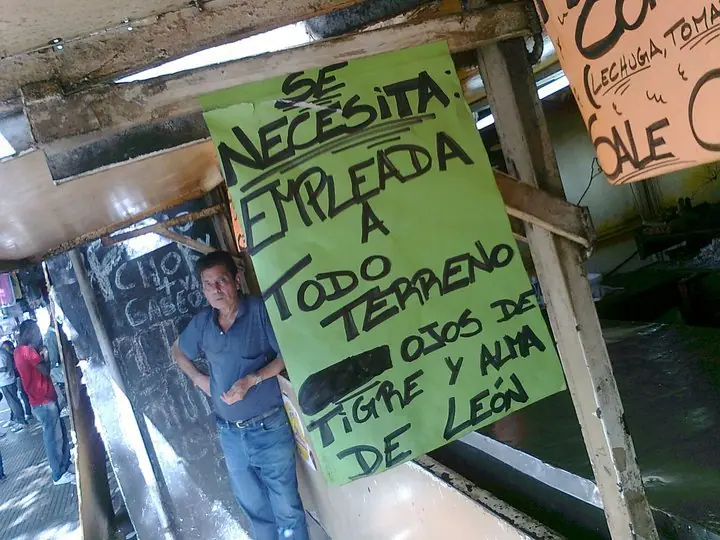 SE
NECESITA:
EMPLEADA
A
TODO
TERRENO
OJOS DE
TIGRE Y ALMA
DE LEÓN
(LECHUGA, TOMA
SALE
CHOR
GASEO